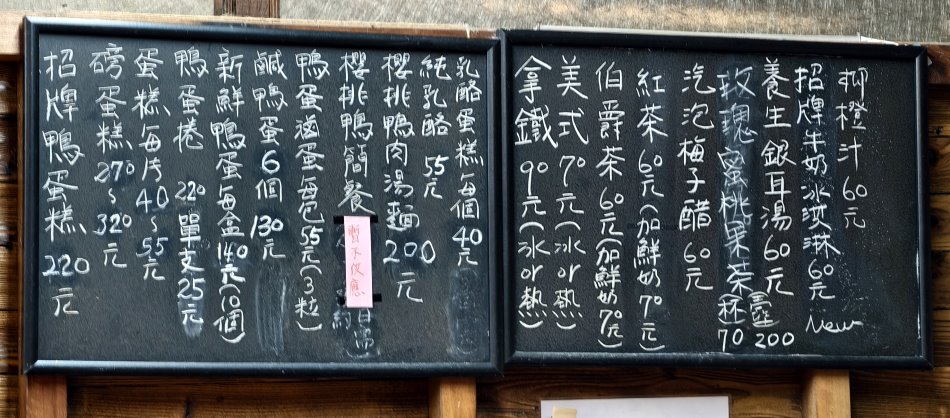 柳橙汁60元
招牌牛奶冰淇淋60元 New
養生銀耳湯60元
玫瑰蜜桃果茶杯70 壺200
汽泡梅子醋60元
紅茶60元(加鮮奶70元)
伯爵茶60元(加鮮奶70元)
美式70元(冰or熱)
拿鐵90元(冰or熱)
乳酪蛋糕每個40元
純乳酪 55元
櫻桃鴨肉湯麵200元
櫻桃鴨簡餐
暫不供應
鴨蛋滷蛋每包55元(3粒)
鹹鴨蛋6個130元
新鮮鴨蛋每盒140元(10個)
鴨蛋捲 220 單支25元
蛋糕每片40~55元
磅蛋糕270~320元
招牌鴨蛋糕220元